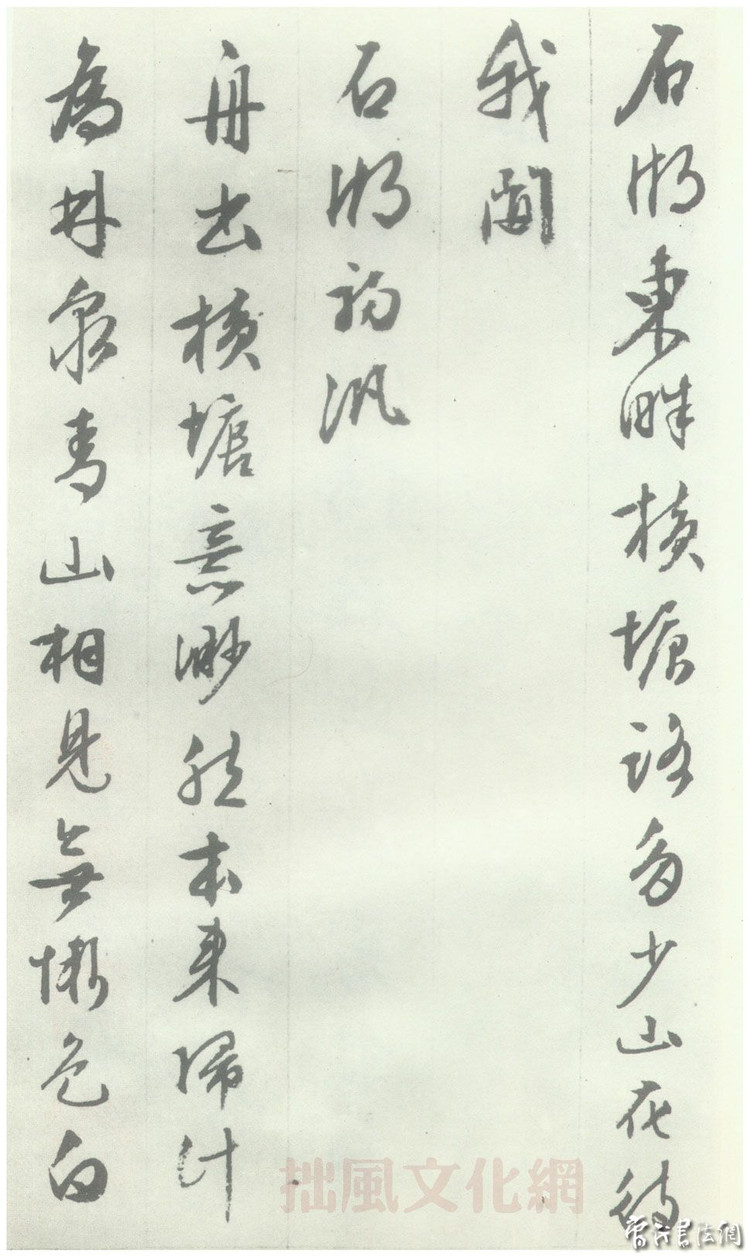 石湖東畔橫塘路多少山花待
我開
石湖初汎
舟出橫塘意渺然本來歸計
為林泉青山相見無慚色白
拙風文化網
書法網